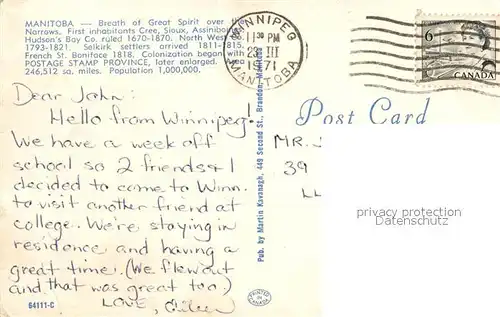 MANITOBA — Breath of Great Spirit over the
Narrows. First inhabitants Cree, Sioux, Assiniboine
Hudson's Bay Co. ruled 1670-1870. North West Co.
1793-1821. Selkirk settlers arrived 1811-1815.
French St. Boniface 1818. Colonization began with
POSTAGE STAMP PROVINCE, later enlarged.
246,512 sq. miles. Population 1,000,000.
WINNIPEG
1 30 PM
23 III
1971
MANITOBA
6
CANADA
Dear John:
Hello from Winnipeg!
We have a week off
school so 2 friends & I
decided to come to Winn.
to visit another friend at
college. We're staying in
residence and having a
great time. (We flew out
and that was great too.)
LOVE, Eileen
64111-C
Pub. by Martin Kavanagh, 449 Second St., Brandon, Manitoba
PRINTED IN CANADA
Post Card
MR. J
39
LL
privacy protection
Datenschutz